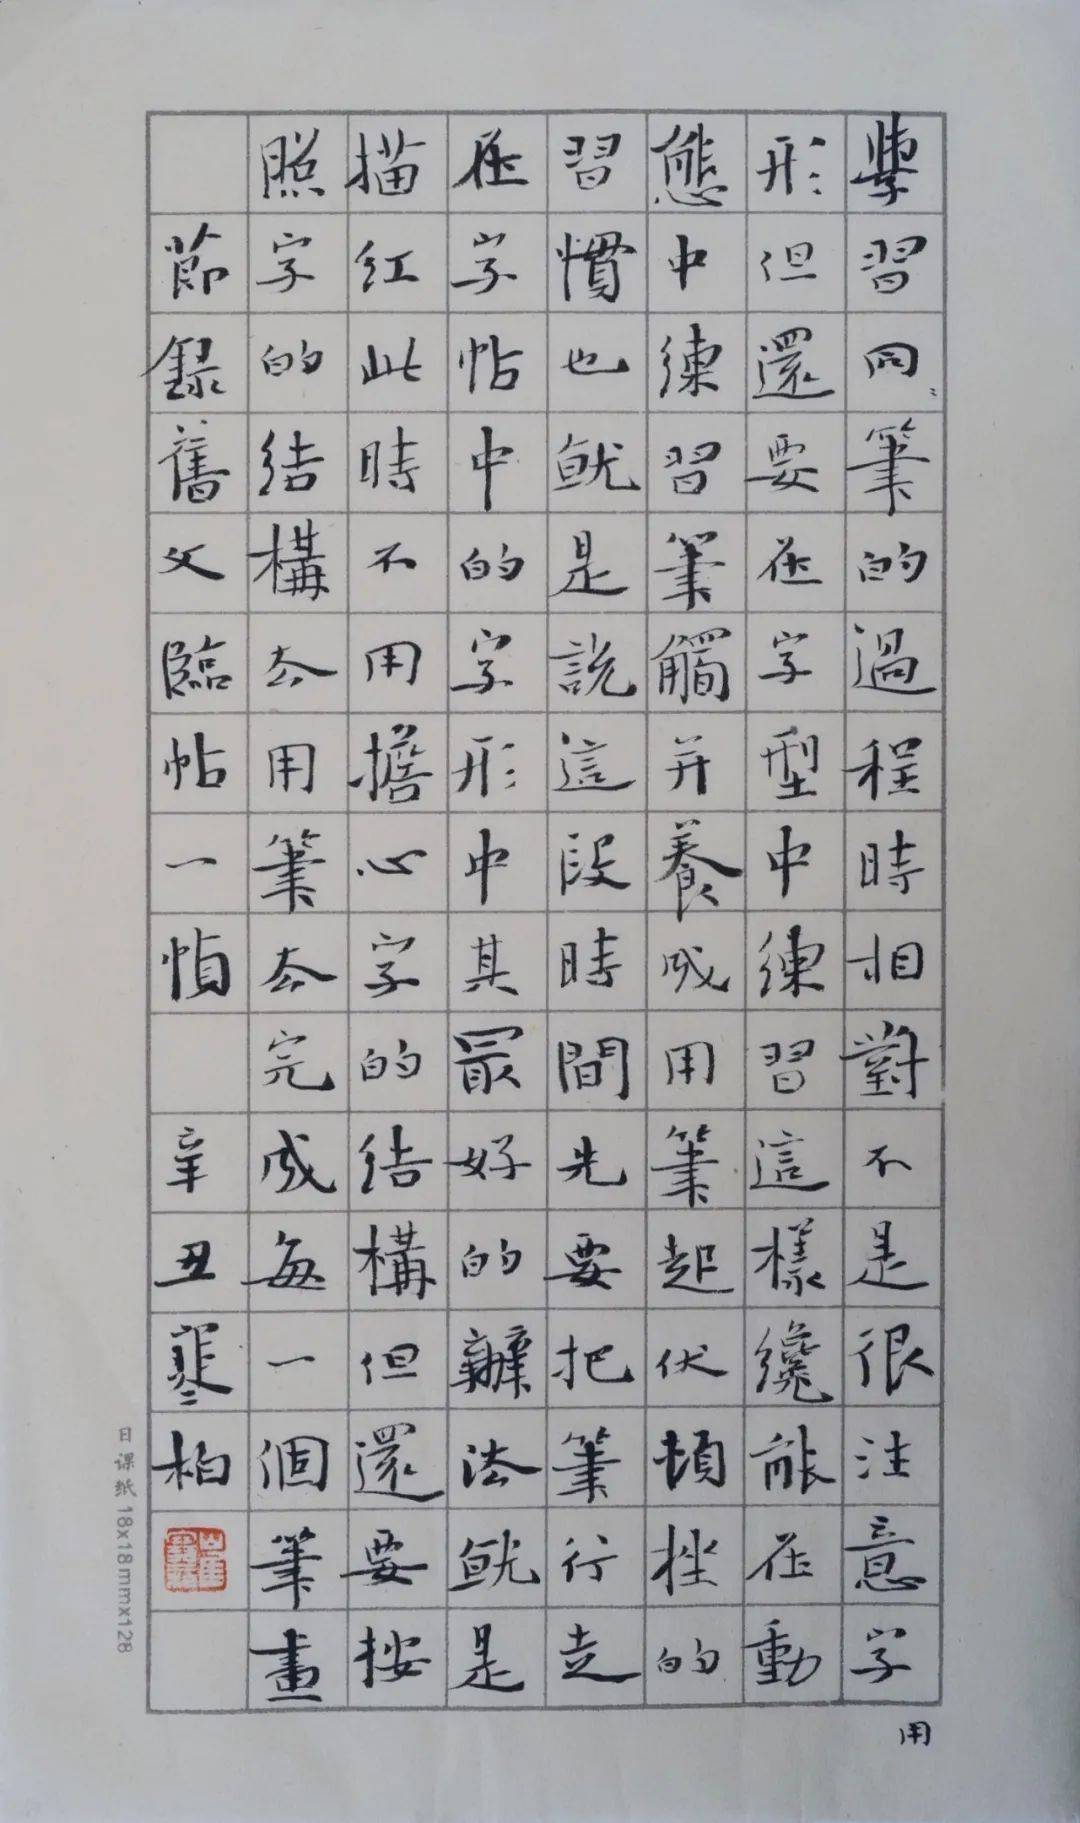 學習同筆的過程時相對不是很注意字
形但還要在字型中練習這樣纔能在動
態中練習筆觸并養成用筆起伏頓挫的
習慣也就是說這段時間先要把筆行走
在字帖中的字形中其最好的辦法就是
描紅此時不用擔心字的結構但還要按
照字的結構去用筆去完成每一個筆畫
節錄舊文臨帖一幀 辛丑寒柏
用
日课纸18x18mmx128